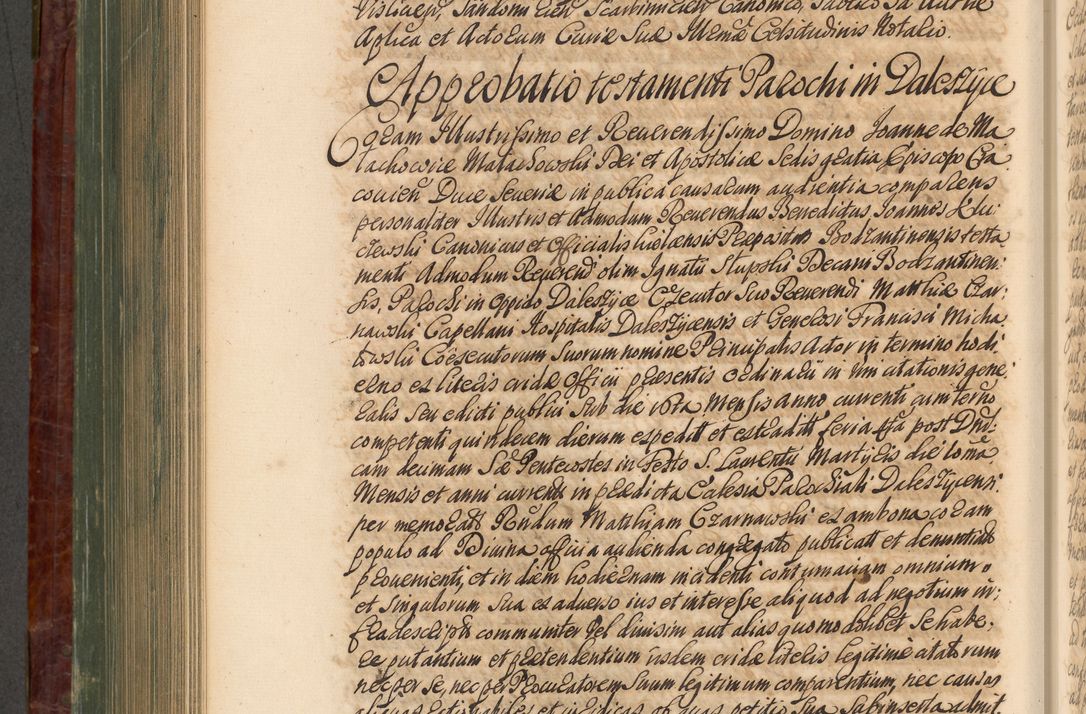 Aplica et Actorum Curiæ Suæ Illmæ Celsitudinis Notario.
Approbatio testamenti Parochi in Daleszyce
Coram Illustrissimo et Reverendissimo Domino Joanne de Ma
łachowice Małachowski Dei et Apostolicæ Sedis gratia Episcopo Cra
covień Duce Severiæ in publica causarum audientia comparens
personaliter Illustris et Admodum Reverendus Benedictus Joannes Klu
czewski Canonicus et Officialis Kielcensis Præpositus Bodzantinensis testa
menti Admodum Reverendi olim Ignatii Stupski Decani Bodzantinen
sis, Parochi in Oppido Daleszyce Executor suo Reverendi Matthiæ Czar
nawski Capellani Hospitalis Daleszycensis et Generosi Francisci Micha
łowski Coexecutorum suorum nomine Principalis Actor in termino hodi
erno ex literis cridæ Officii præsentis ordinarii in vim citationis gene
ralis seu edicti publici sub die Mensis anno currenti cum termo
competenti quindecim dierum expedit et extradit feria post Dnī
cam decimam Sæ Pentecostes in Festo S. Laurentii Martyris die 10ma
Mensis et anni currenti in prædicta Ecclesia Parochiali Daleszycensi
per memorat Rndum Matthiam Czarnawski ex ambona coram
populo ad Divina officia audienda congregato publicatt et denuntiatt
provenienti, et in diem hodiernam incidenti contumaciam omnium
et singulorum sua ex adverso ius et interesse aliquod ad negotium in
fradescriptū communiter vel divisim aut alias quomodolibet se habe
re putantium et prætendentium iisdem cridæ literis legitime citatorum
nec per se, nec per Procuratorem suum legitimum comparentium, nec causas